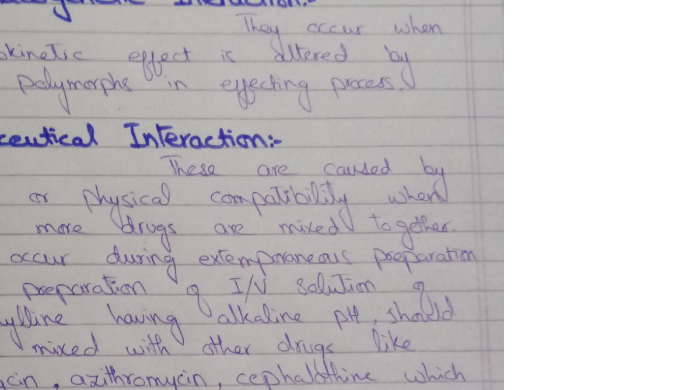 Interaction:-
They occur when
okinetic effect is altered by
polymorphs in effecting process.
ceutical Interaction:-
These are caused by
or physical compatibility when
more drugs are mixed together.
occur during extemporaneous preparation
preparation of I/V solution of
ylline having alkaline pH, should
mixed with other drugs like
cin, azithromycin, cephalothine which